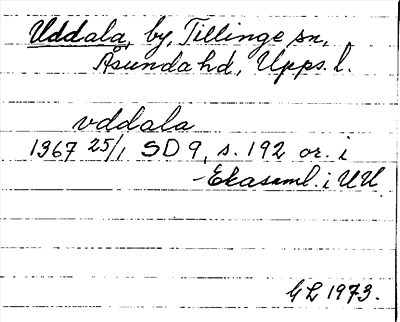 Uddala, by, Tillinge sn,
Åsunda hd, Upps. l.
vddala
1367 25/1 SD 9, s. 192 or. i
Ekasaml. i UU
GL 1973.